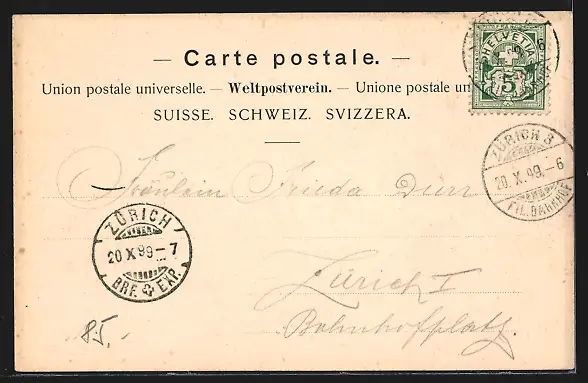 — Carte postale. —
Union postale universelle. — Weltpostverein. — Unione postale un
SUISSE. SCHWEIZ. SVIZZERA.
HELVETIA
5
6
ZÜRICH 8
20. X. 99.-6
FIL. BAHNHOF
Fräulein Frieda Dürr
ZÜRICH
20 X 99 - 7
BRF. EXP.
Zürich I
Bahnhofplatz.
85.